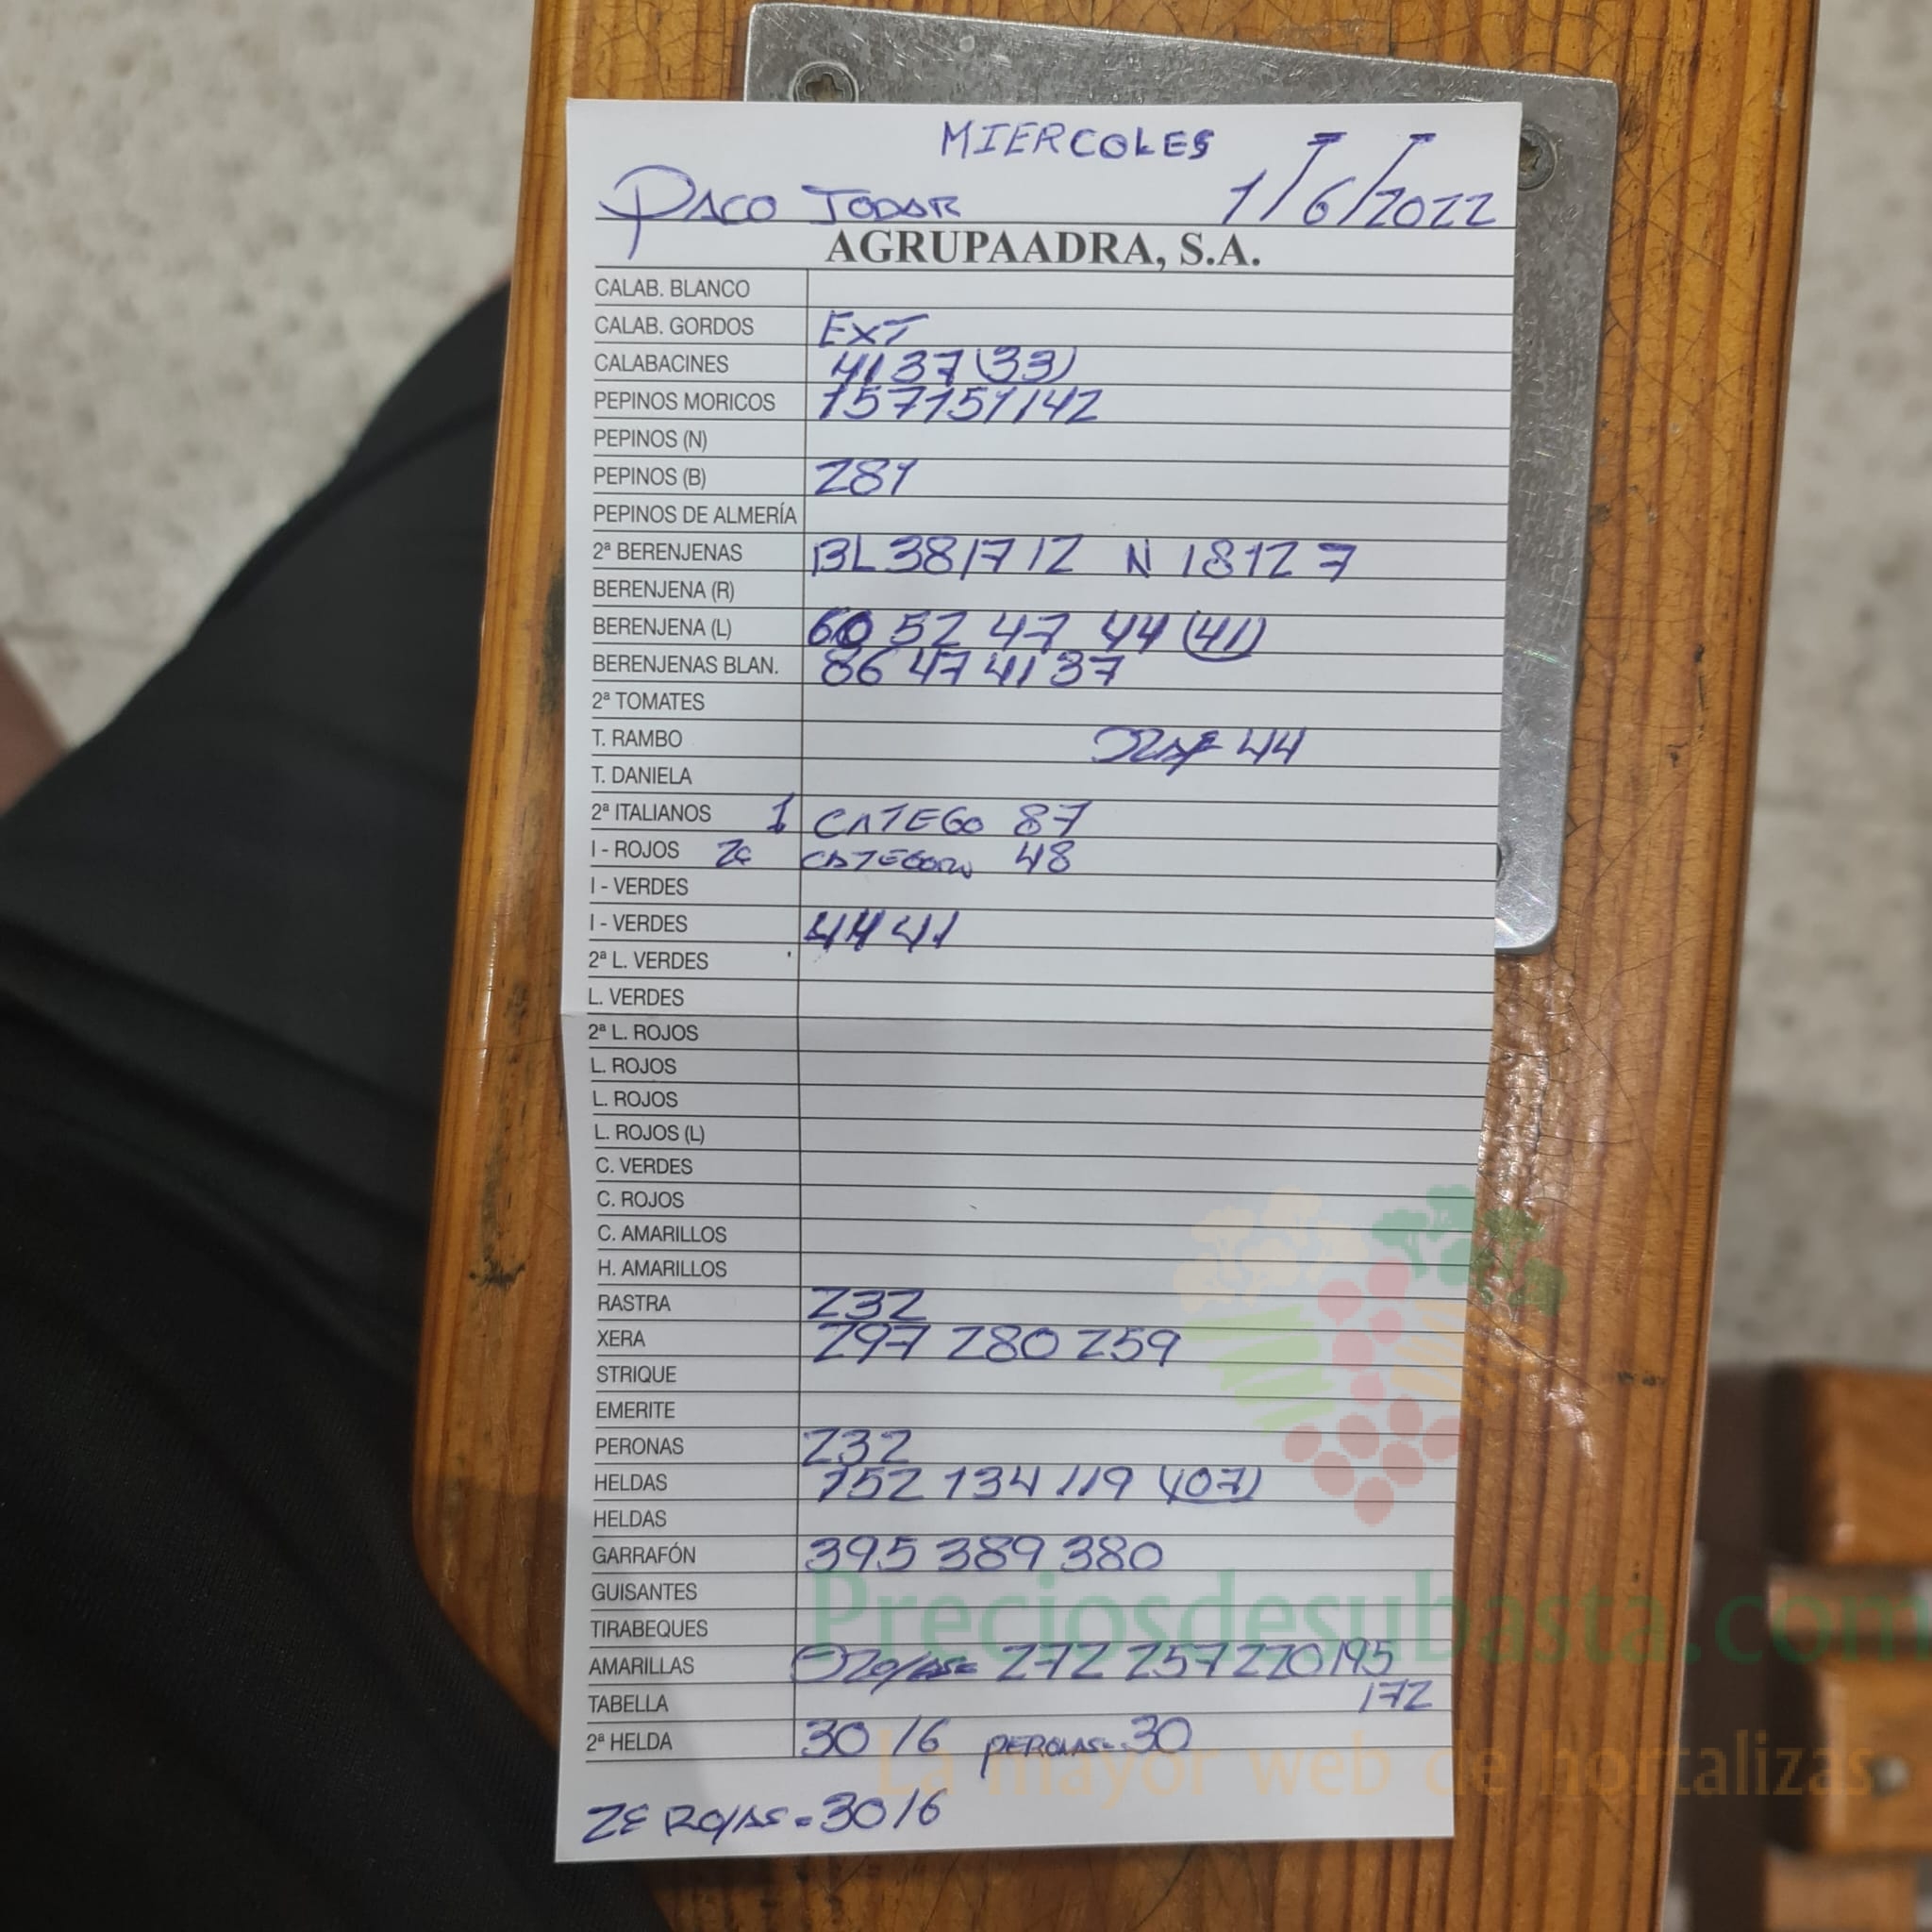 MIERCOLES
PACO JODAR 1/6/2022
AGRUPAADRA, S.A.
CALAB. BLANCO
CALAB. GORDOS EXT
CALABACINES 41 37 (33)
PEPINOS MORICOS 157 151 142
PEPINOS (N)
PEPINOS (B) 281
PEPINOS DE ALMERÍA
2ª BERENJENAS BL 38 17 12 N 18 12 7
BERENJENA (R)
BERENJENA (L) 60 52 47 44 (41)
BERENJENAS BLAN. 86 47 41 37
2ª TOMATES
T. RAMBO 44
T. DANIELA
2ª ITALIANOS 1 CATEGO 87
I - ROJOS 2ª CATEGORI 48
I - VERDES
I - VERDES 44 41
2ª L. VERDES
L. VERDES
2ª L. ROJOS
L. ROJOS
L. ROJOS
L. ROJOS (L)
C. VERDES
C. ROJOS
C. AMARILLOS
H. AMARILLOS
RASTRA 232
XERA 297 280 259
STRIQUE
EMERITE
PERONAS 232
HELDAS 152 134 119 (107)
HELDAS
GARRAFÓN 395 389 380
GUISANTES
TIRABEQUES
AMARILLAS ROJAS= 272 257 220 195
TABELLA 172
2ª HELDA 30 16 PERONAS= 30
2ª ROJAS= 30 16
Preciosdesubasta.com
La mayor web de hortalizas